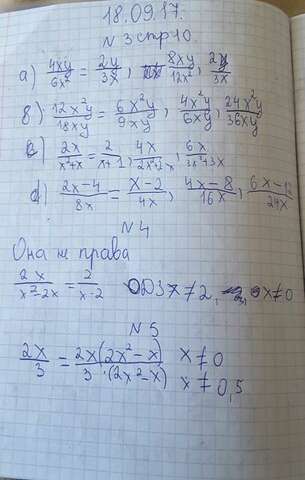 18.09.17.
N 3 стр 10.
а) 4xy/6x² = 2y/3x, 8xy/12x², 2y/3x
в) 12x²y/18xy = 6x²y/9xy, 4x²y/6xy, 24x²y/36xy
с) 2x/x²+x = 2/x+1, 4x/2x²+2x, 6x/3x²+3x
d) 2x-4/8x = x-2/4x, 4x-8/16x, 6x-12/24x
N 4
Она не права
2x/x²-2x = 2/x-2 ОДЗ x≠2, x≠0
N 5
2x/3 = 2x(2x²-x)/3·(2x²-x) x≠0
x≠0,5